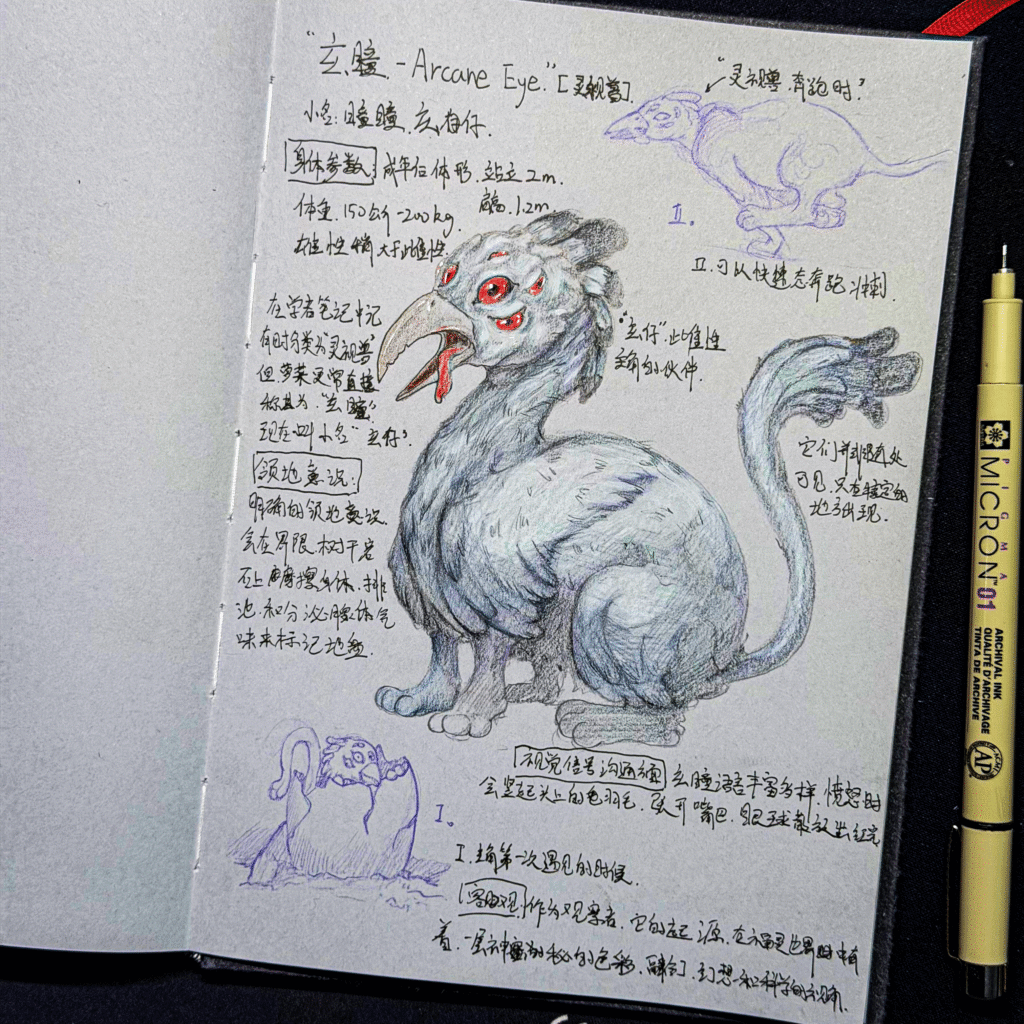 "玄瞳 - Arcane Eye." [灵视兽].
小名: 瞳瞳, 玄仔.
"灵视兽, 奔跑时"
身体参数 成年体形, 站立 2m.
高 1.2m.
体重. 150公斤-200kg.
雄性稍大于雌性.
II.
II. 可以快速态奔跑冲刺.
在学者笔记中记
有时归类为"灵视兽"
但 更常直接
称其为"玄瞳"
现在叫小名"玄仔".
"玄仔" 雌性
主角的小伙伴.
领地意识:
明确的领地意识,
会在界限, 树干岩
石上摩擦身体, 排
泄, 和分泌腺体气
味来标记地盘.
它们并非随处
可见, 只在特定的
地方出现.
视觉信号沟通 玄瞳语丰富多样, 愤怒时
会竖起头上的色羽毛, 张开嘴巴, 眼球散放出红光
I.
I. 主角第一次遇见的时候.
作为观察者, 它的起源, 在 世界时中有
着, 一层神秘的色彩, 融合, 幻想和科学的
PIGMA
MICRON™ 01
ARCHIVAL INK
QUALITÉ D'ARCHIVAGE
TINTA DE ARCHIVE
AP